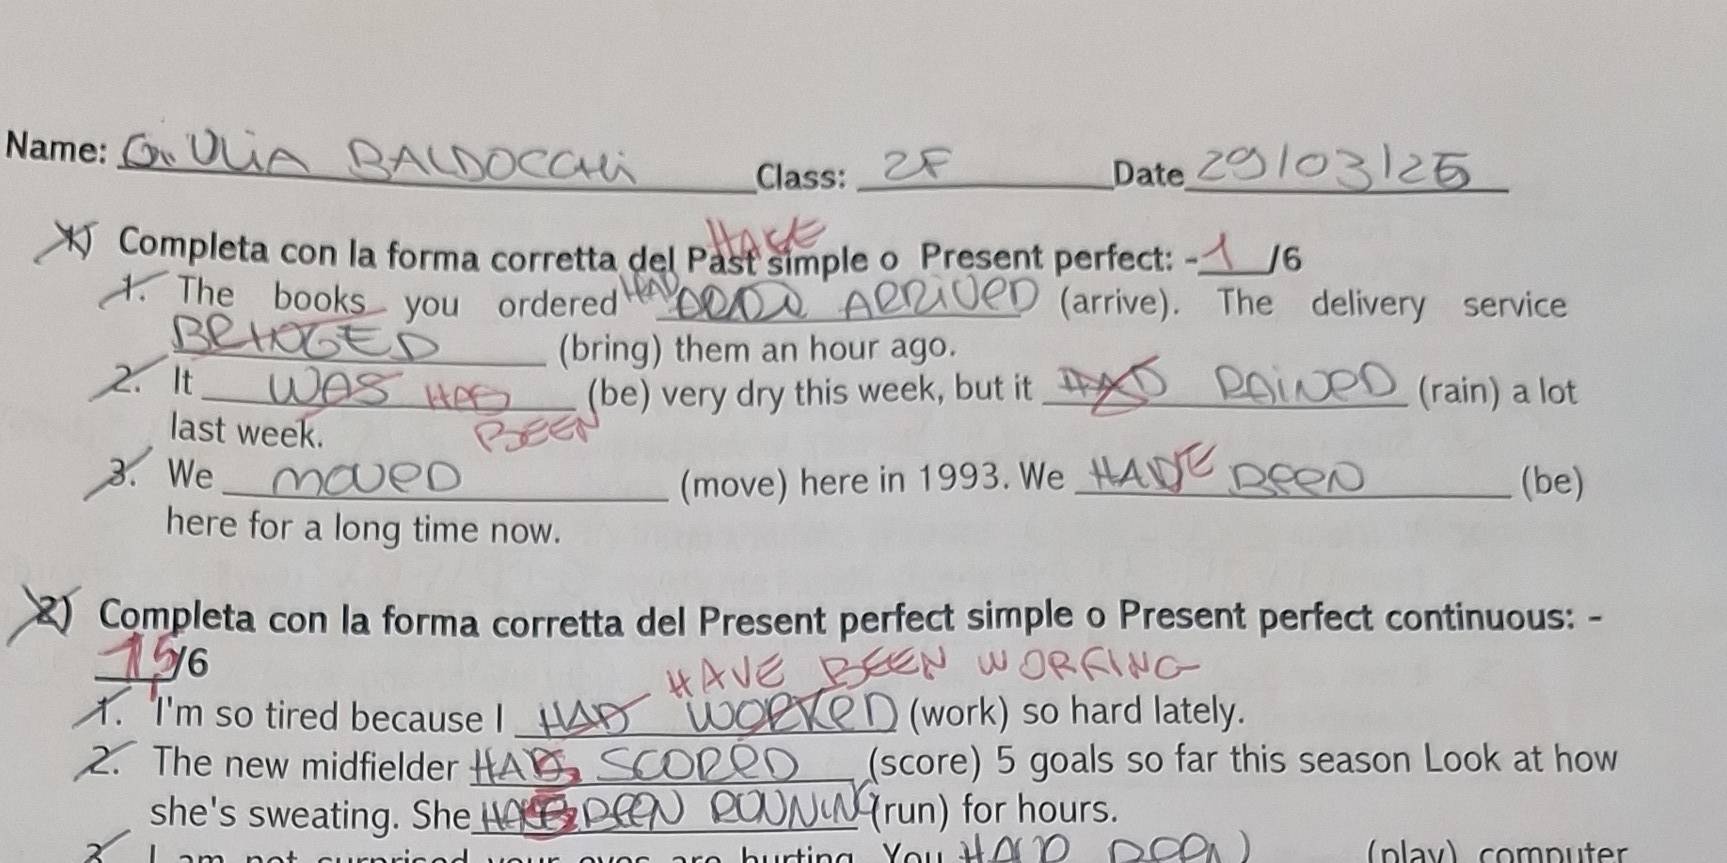 Name: GiULiA BALDOCCHi Class: 2F Date 29/03/25
HAVE
1) Completa con la forma corretta del Past simple o Present perfect: -1/6
1. The books you ordered HAD ARRIVED (arrive). The delivery service
BRINGED (bring) them an hour ago.
2. It WAS HAS (be) very dry this week, but it HAD RAINED (rain) a lot
last week. BEEN
3. We MOVED (move) here in 1993. We HAVE BEEN (be)
here for a long time now.
2) Completa con la forma corretta del Present perfect simple o Present perfect continuous: -
15/6
HAVE BEEN WORKING
1. I'm so tired because I HAD WORKED (work) so hard lately.
2. The new midfielder HAS SCORED (score) 5 goals so far this season Look at how
she's sweating. She HAS BEEN ROUNING (run) for hours.
3. I am not surprised your eyes are hurting. You HAD BEEN (play) computer